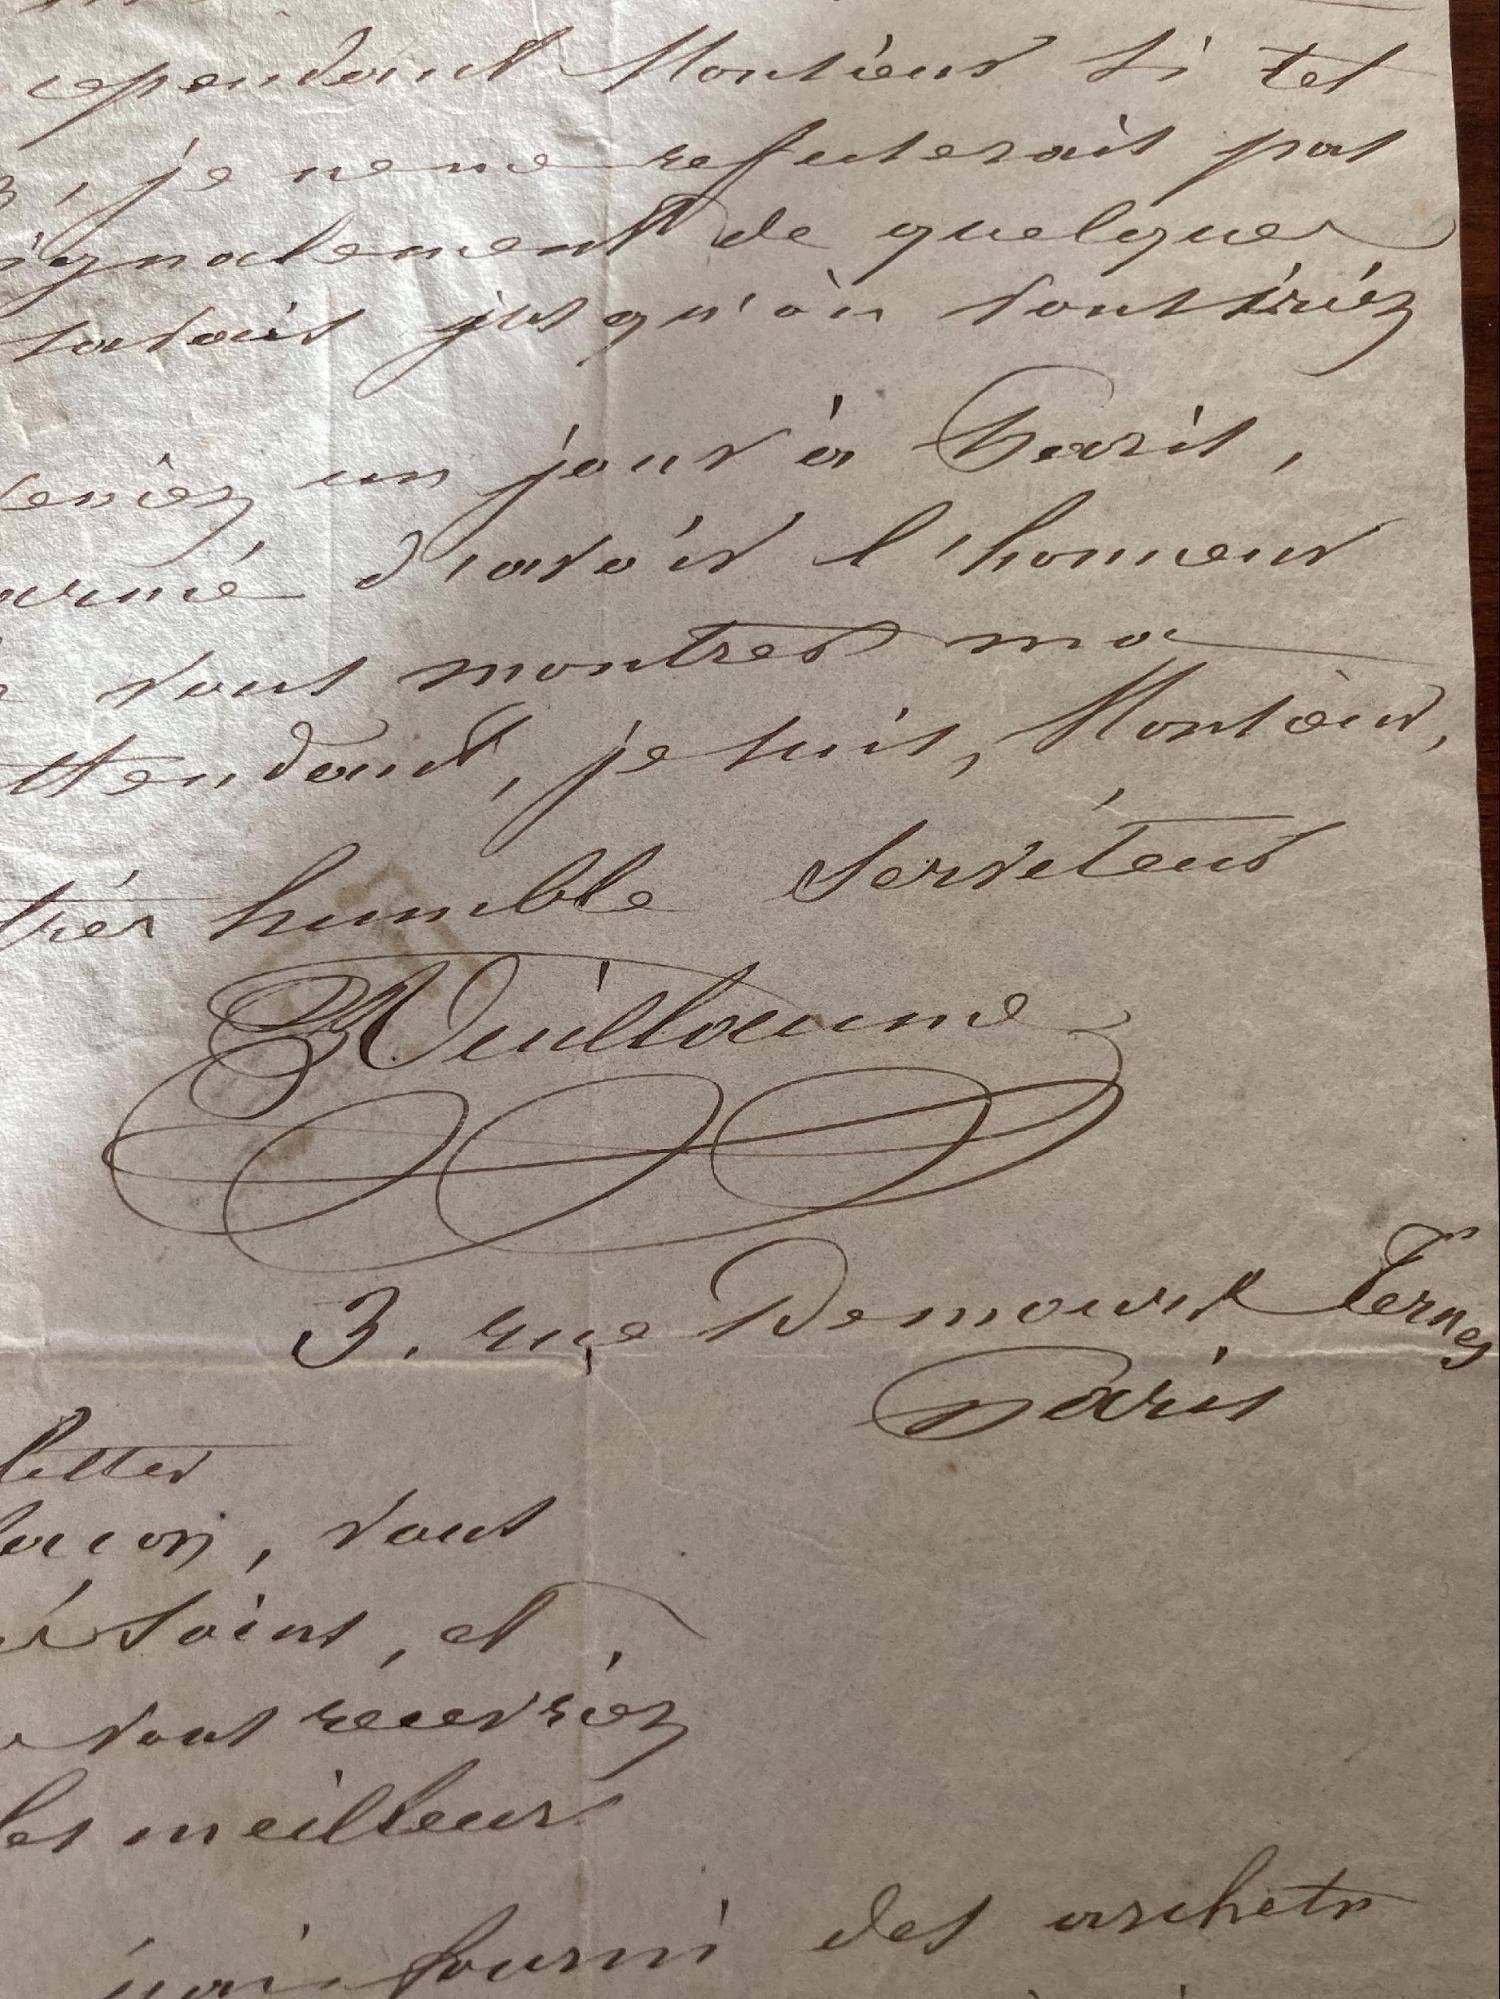 cependant Monsieur si tel
, je ne me refuserais pas
signalement de quelques
savais jusqu'où vous iriez
veniez un jour à Paris,
armé d'avoir l'honneur
vous montrer ma
attendant, je suis, Monsieur,
très humble Serviteur
Vuillaume
3. rue Demours Ternes
Paris
letter
, vous
soins, et
vous recevriez
les meilleurs
fourni des archets